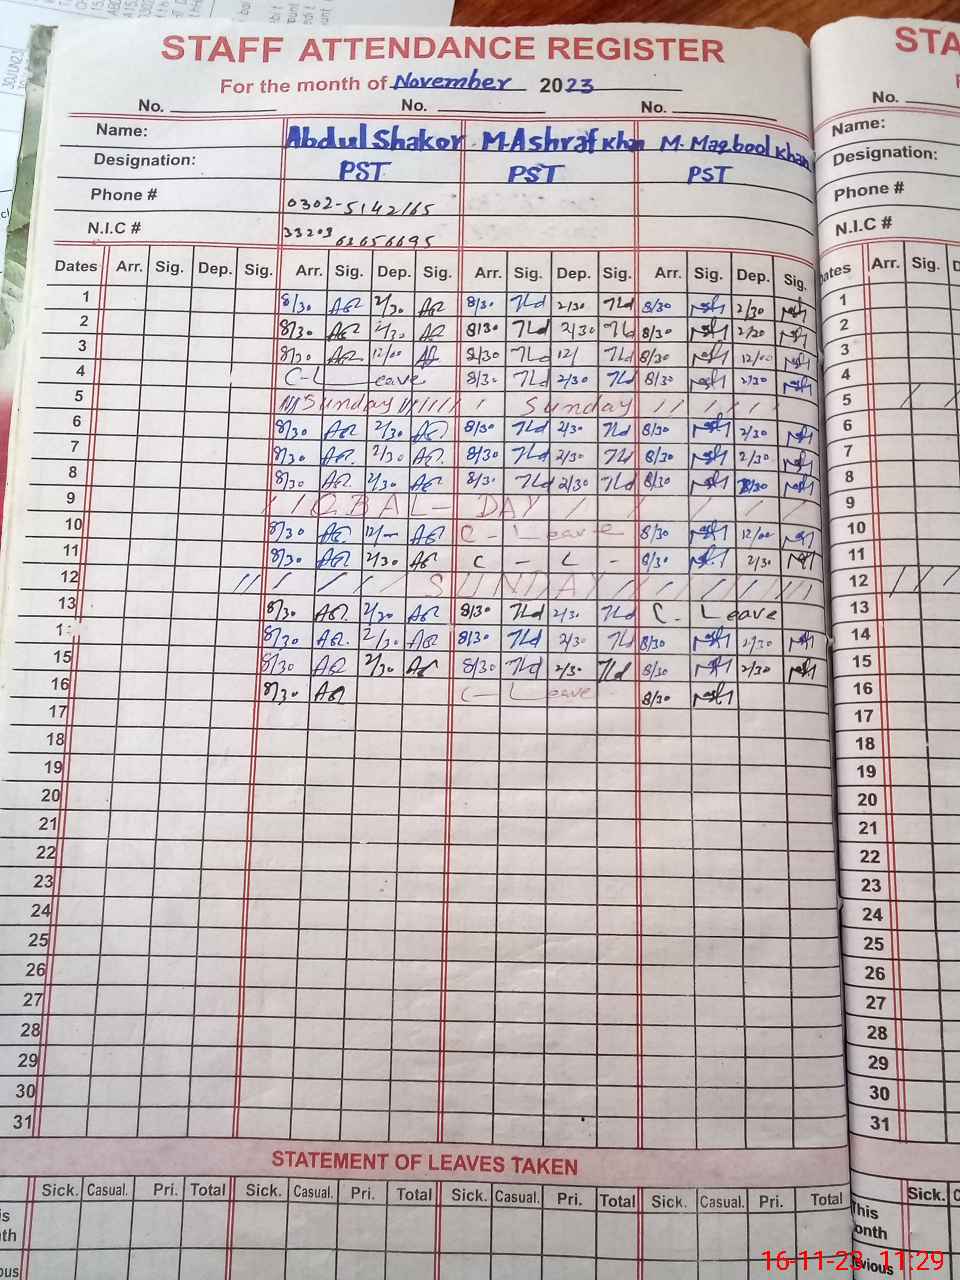 STAFF ATTENDANCE REGISTER
For the month of November 2023
No. No. No.
Name: Abdul Shakor M.Ashraf Khan M. Maqbool Khan
Designation: PST PST PST
Phone # 0302-5142165
N.I.C # 33203 61656695
Dates Arr. Sig. Dep. Sig. Arr. Sig. Dep. Sig. Arr. Sig. Dep. Sig. Arr. Sig. Dep. Sig.
1 8/30 2/30 8/30 2/30 8/30 2/30
2 8/30 2/30 8/30 2/30 8/30 2/30
3 8/30 12/00 8/30 12/ 8/30 12/00
4 C-Leave 8/30 2/30 8/30 2/30
5 Sunday Sunday
6 8/30 2/30 8/30 2/30 8/30 2/30
7 8/30 2/30 8/30 2/30 8/30 2/30
8 8/30 2/30 8/30 2/30 8/30 2/30
9 IQBAL-DAY
10 8/30 12/- C-Leave 8/30 12/00
11 8/30 2/30 C - L - 8/30 2/30
12 SUNDAY
13 8/30 2/30 8/30 2/30 C. Leave
8/30 2/30 8/30 2/30 8/30 2/30
15 8/30 2/30 8/30 2/30 8/30 2/30
16 8/30 C-Leave 8/30
17
18
19
20
21
22
23
24
25
26
27
28
29
30
31
STATEMENT OF LEAVES TAKEN
Sick. Casual. Pri. Total Sick. Casual. Pri. Total Sick. Casual. Pri. Total Sick. Casual. Pri. Total
STA
No.
Name:
Designation:
Phone #
N.I.C #
Arr. Sig.
1
2
3
4
5
6
7
8
9
10
11
12
13
14
15
16
17
18
19
20
21
22
23
24
25
26
27
28
29
30
31
Sick.
This
16-11-23 11:29